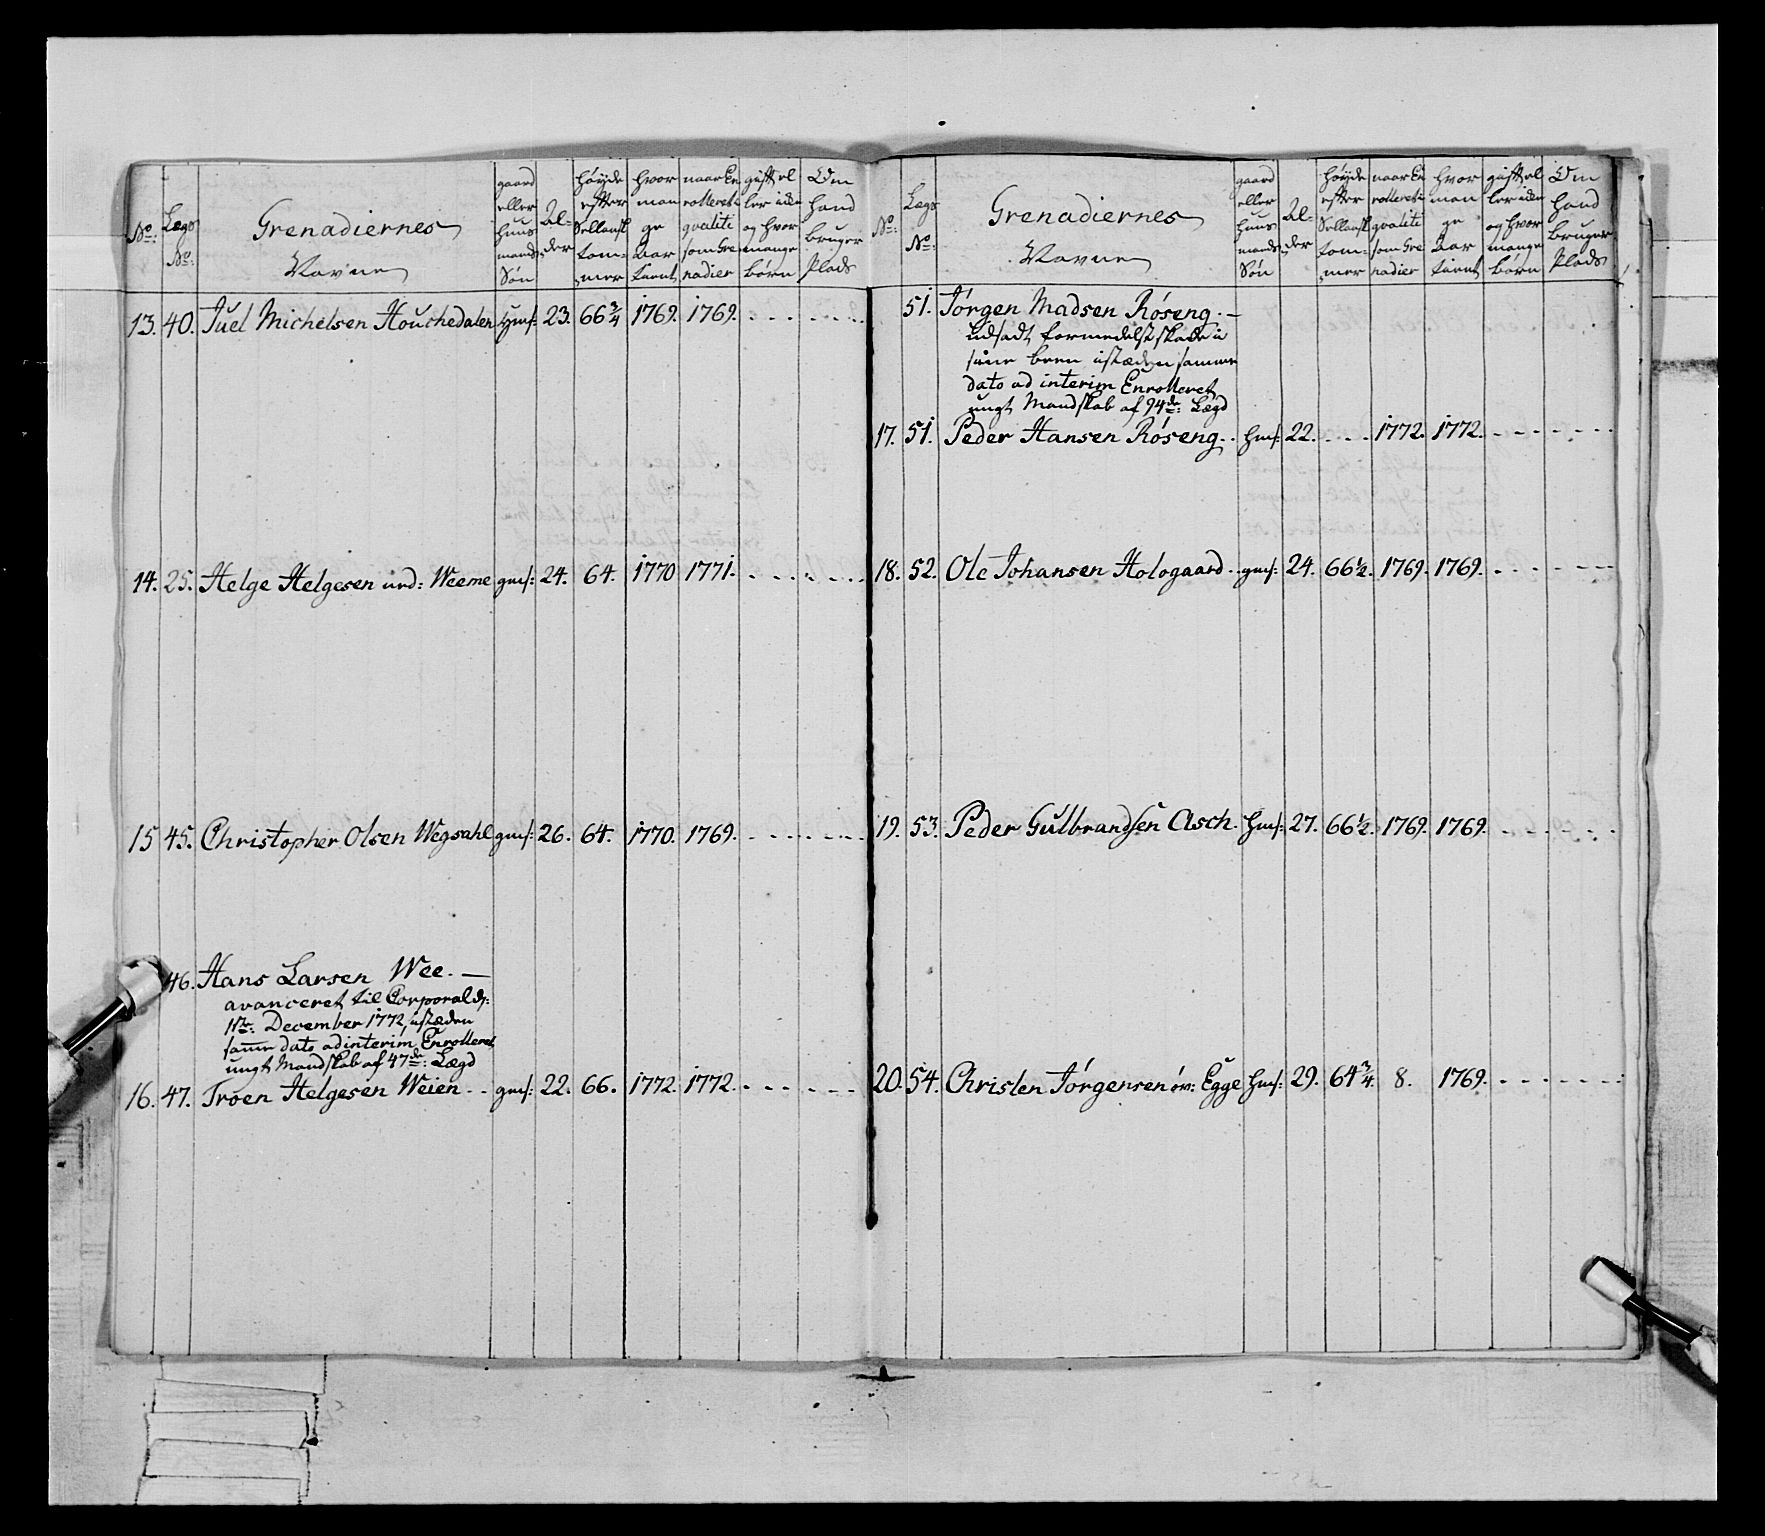 No:
Lægs No:
Grenadiernes Navne
gaard eller huus mands Søn
Al- der
høyde efter Sellansk tom- mer
hvor man ge Aar tient
naar En rolleret i qvalité som Gre nadier
gift el ler iche og hvor mange børn
Om hand bruger Plads
13. 40. Juel Michelsen Houchedalen hms: 23. 66 3/4 1769. 1769.
14. 25. Helge Helgesen nrd: Weeme gms: 24. 64. 1770 1771.
15 45. Christopher Olsen Wegsahl gms: 26. 64. 1770. 1769.
46. Hans Larsen Wee. —
avanceret til Corporal d:
11te: December 1772, istæden
samme dato ad interim Enrolleret
ungt Mandskab af 47de: Lægd
16. 47. Troen Helgesen Weien gms: 22. 66. 1772. 1772.
No:
Lægs No:
Grenadiernes Navne
gaard eller huus mands Søn
Al- der
høyde efter Sellansk tom- mer
naar En rolleret i qvalité som Gre nadier
hvor man ge Aar tient
gift el ler iche og hvor mange børn
Om hand bruger Plads
51. Jörgen Madsen Röseng. —
udsadt formedelst skade i
sine been istæden samme
dato ad interim Enrolleret
ungt Mandskab af 94de: Lægd
17. 51. Peder Hansen Röseng. hms: 22. 1772. 1772.
18. 52. Ole Johansen Hologaard gms: 24. 66 1/2. 1769. 1769.
19. 53. Peder Gulbrandsen Asch. hms: 27. 66 1/2. 1769. 1769.
20. 54. Christen Jörgensen öv: Egge hms: 29. 64 3/4. 8. 1769.